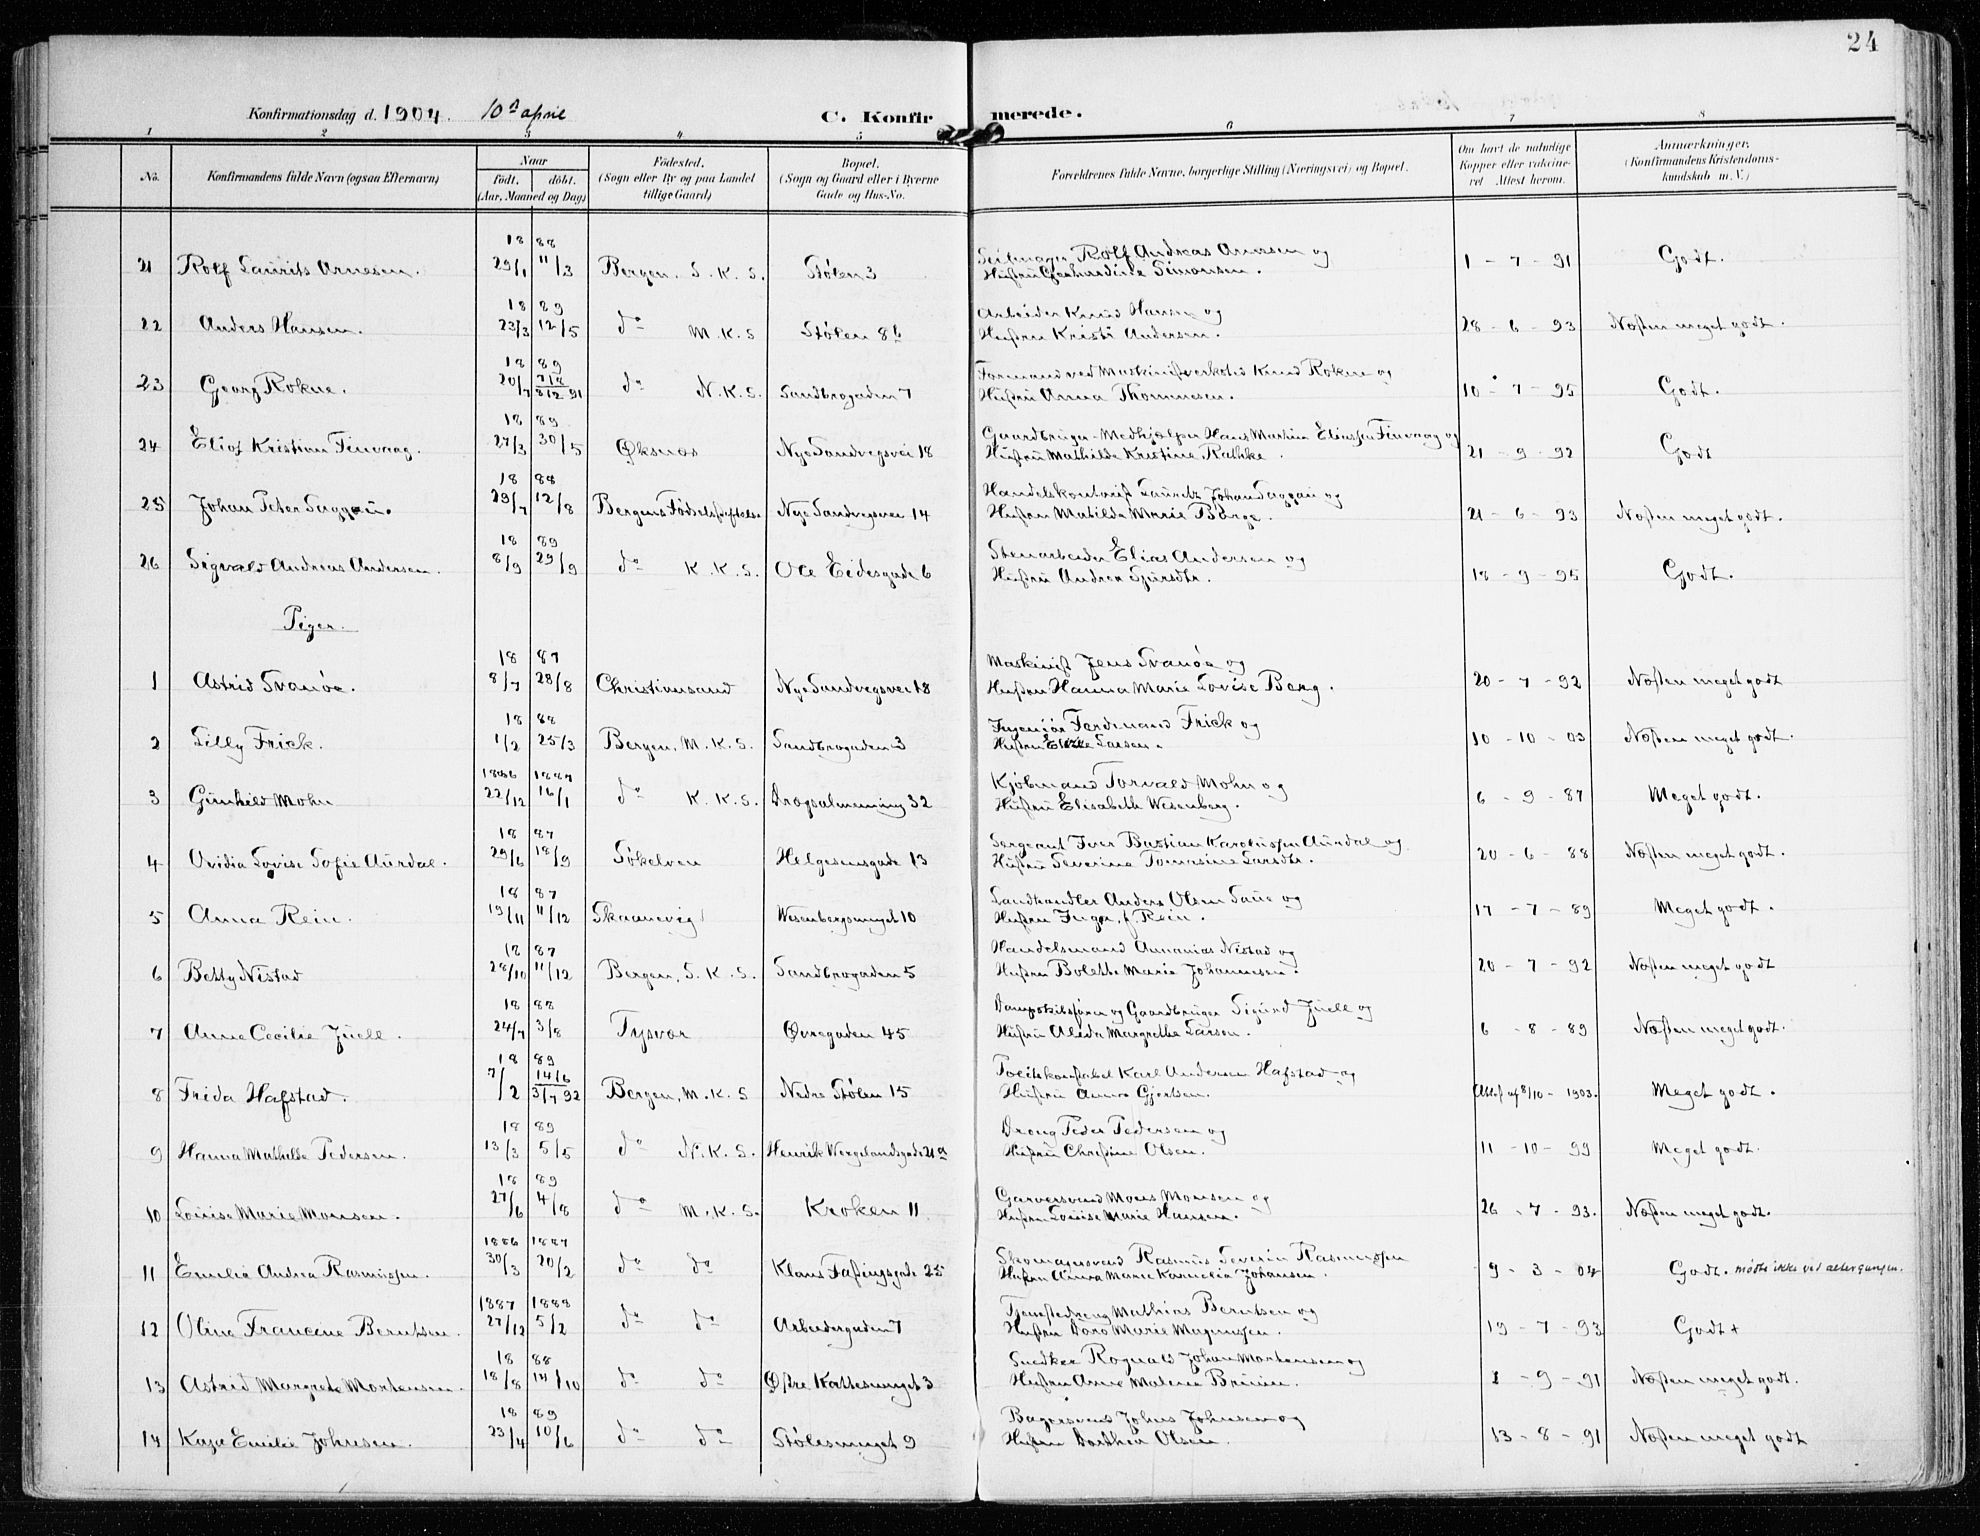 24
Konfirmationsdag d. 1904. 10de april C. Konfirmerede.
1 2 3 4 5 6 7 8
No. Konfirmandens fulde Navn (ogsaa Efternavn) Naar Født. døbt. (Aar, Maaned og Dag) Fødested. (Sogn eller By og paa Landet tillige Gaard) Bopæl. (Sogn og Gaard eller i Byerne Gade og Hus-No. Forældrenes fulde Navne, borgerlige Stilling (Næringsvei) og Bopæl. Om havt de naturlige Kopper eller vaccineret. Attest herom. Anmærkninger. (Konfirmandens Kristendomskundskab m. V.)
18 88
21 Rolf Laurits Arnesen. 29/1 11/3 Bergen, S. K. S. Stølen 3 Rolf Andreas Arnesen og 1 - 7 - 91 Godt.
Hustru Gerhardine Simonsen.
18 89
22 Anders Hansen. 23/3 12/5 do M. K. S Stølen 8b Arbeider Knud Hansen og 28 - 6 - 93 Næsten meget godt.
Hustru Kristi Andersen.
18 89
23 Georg Rokne. 20/7 8/12 91 do N. K. S. Sandbrogaden 7 Formand ved Maskinistverksted Knud Rokne og 10 - 7 - 95 Godt.
Hustru Anna Thommesen.
18 89
24 Eliof Kristian Finvaag. 27/3 30/5 Øksnæs Nye Sandvigsvei 18 Gaardbruger-Medhjælper Hans Martin Eliassen Finvaag og 21 - 9 - 92 Godt
Hustru Mathilde Kristine Rathke.
18 88
25 Johan Peter Saggau. 29/7 12/8 Bergens Fødselsstiftelse Nye Sandvigsvei 14 Handelskontorist Lauritz Johan Saggau og 21 - 6 - 93 Næsten meget godt.
Hustru Matilde Marie Børge.
18 89
26 Sigvald Andreas Andersen. 8/9 29/9 do K. K. S. Ole Eidesgade 6 Stenarbeider Elias Andersen og 18 - 9 - 95 Godt.
Hustru Andrea Sjursdtr.
Piger.
18 87
1 Astrid Svanøe. 8/7 28/8 Christiansand Nye Sandvigsvei 18 Maskinist Jens Svanøe og 20 - 7 - 92 Næsten meget godt
Hustru Hanna Marie Lovise Berg.
18 88
2 Lilly Frick. 1/2 25/3 Bergen, M. K. S. Sandbrogaden 3 Ingeniør Ferdinand Frick og 10 - 10 - 03 Næsten meget godt.
Hustru Larsen.
1886 1887
3 Gunhild Mohn 22/12 16/1 do K. K. S. Dragsalmening 32 Kjøbmand Torvald Mohn og 6 - 9 - 87 Meget godt.
Hustru Elisabeth Wesenberg.
18 87
4 Ovidia Lovise Sofie Aurdal. 29/6 18/9 Søkelven Helgesensgade 13 Sergeant Iver Bastian Karolussen Aurdal og 20 - 6 - 88 Næsten meget godt.
Hustru Severine Tomasine Larsdtr.
18 87
5 Anna Rein. 19/11 11/12 Skaanevig Wesenbergsmuget 10 Landhandler Anders Olsen Saue og 17 - 7 - 89 Meget godt.
Hustru Inga, f. Rein.
18 87
6 Betty Nistad 28/10 11/12 Bergen, S. K. S. Sandbrogaden 5 Handelsmand Annanias Nistad og 20 - 7 - 92 Næsten meget godt
Hustru Bolette Marie Johannesen.
18 88
7 Anne Cecilie Juell. 24/7 3/8 Tysvær Øvregaden 45 Dampskibsfører og Gaardbruger Sigurd Juell og 6 - 8 - 89 Næsten meget godt.
Hustru Alida Margrethe Larsen.
18 89
8 Frida Hafstad. 7/2 14/6 3/7 92 Bergen, M. K. S Nedre Stølen 15 Politikonstabel Karl Andersen Hafstad og Attest af 8/10 - 1903. Meget godt.
Hustru Anna Gjertsen.
18 89
9 Hanna Mathilde Pedersen. 13/3 5/5 do N. K. S. Henrik Wergelandsgade 21a Dreng Peder Pedersen og 11 - 10 - 99 Meget godt.
Hustru Christine Olsen.
18 89
10 Louise Marie Monsen. 27/6 4/8 do M. K. S. Kroken 11 Garversvend Mons Monsen og 26 - 7 - 93. Næsten meget godt.
Hustru Louise Marie Hansen.
1886 1887
11 Emilie Andrea Rasmussen. 30/3 20/2 do do Klaus Fastingsgade 25 Skomagersvend Rasmus Severin Rasmussen 9 - 3 - 04 Godt. mødte ikke ved altergangen.
Hustru Anna Marie Kornelia Johansen.
1887 1888
12 Olina Francine Berntsen. 27/12 5/2 do do Arbeidergaden 7 Tjenestedreng Mathias Berntsen og 19 - 7 - 93 Godt +
Hustru Dora Marie Magnussen.
18 88
13 Astrid Margrete Mortensen. 18/8 14/10 do do Østre Kattesmuget 3 Snedker Rognald Johan Mortensen og 1 - 9 - 91 Næsten meget godt.
Hustru Anne Malene Bruun.
18 89
14 Kaja Emilie Johnsen. 23/4 10/6 do do Stølesmuget 9 Bagersvend Johns Johnsen og 13 - 8 - 91 Næsten meget godt
Hustru Dorthea Olsen.